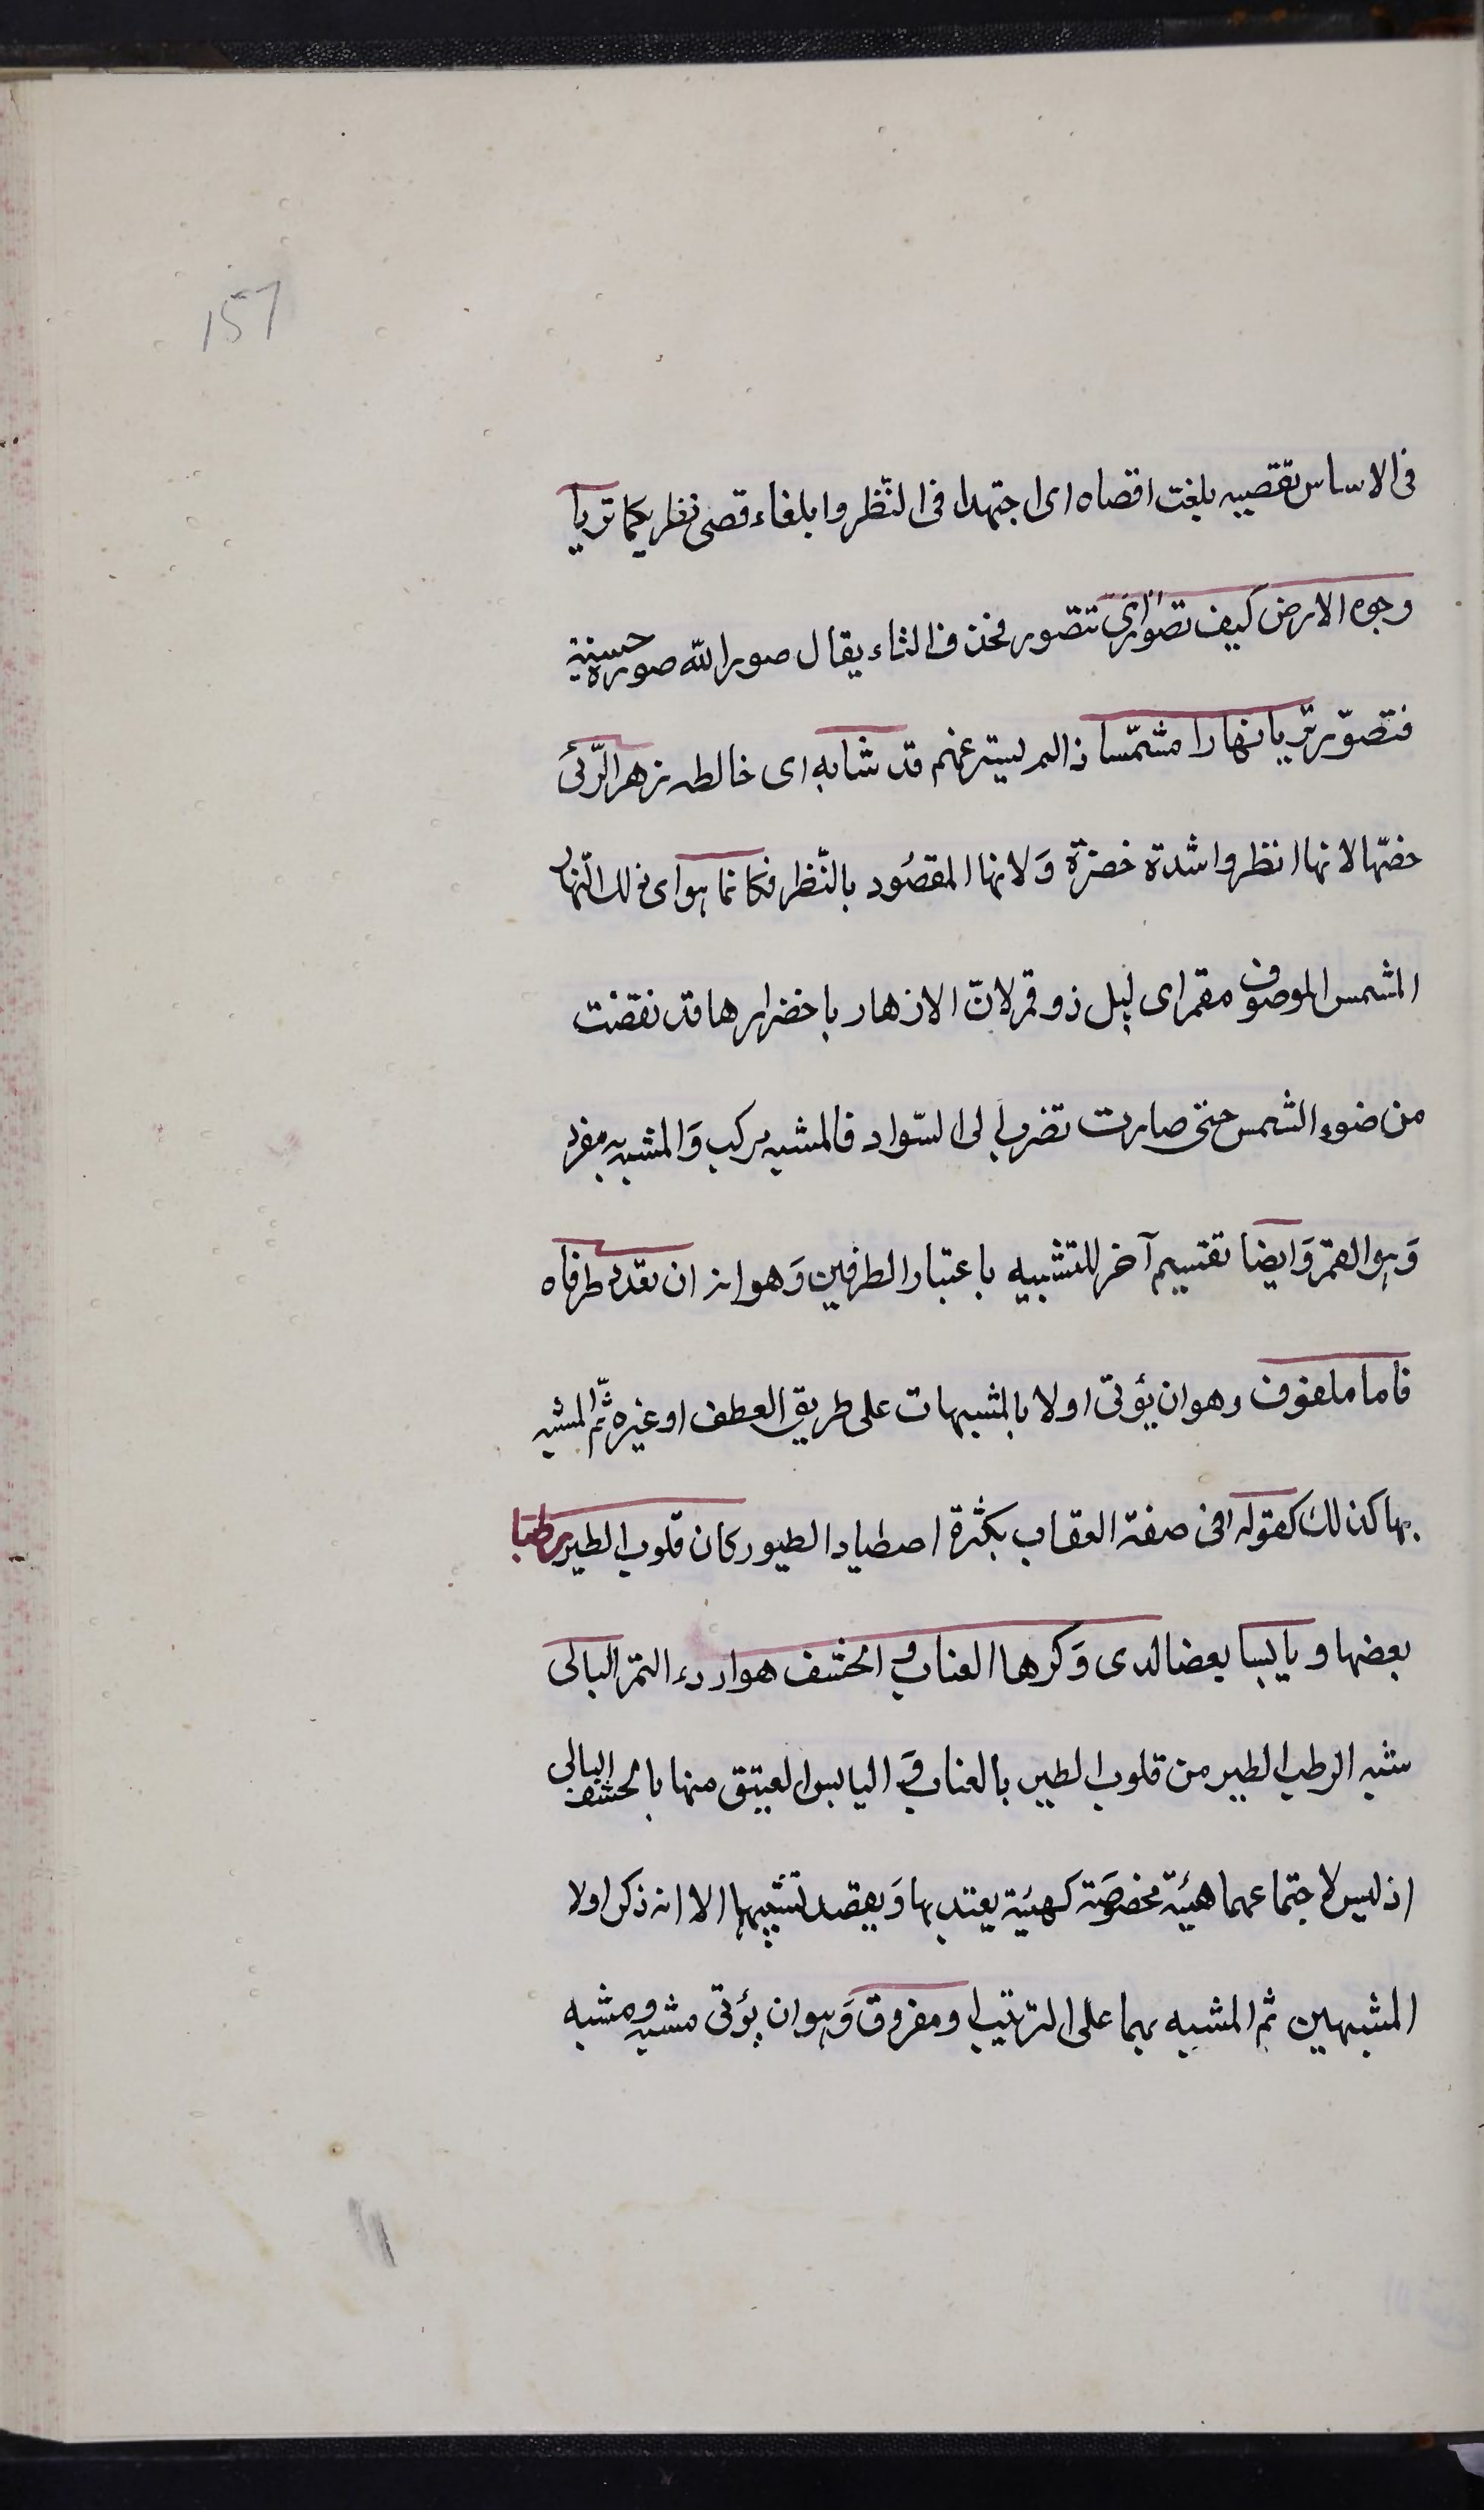 157
فى الاساس تقصيه بلغت اقصاه اى اجتهدا فى النّظر وابلغا ءقصى نظريكما تريا
وجوه الارض كيف تصوّر اى تتصور فحذف الثاء يقال صور الله صورة حسنية
فتصوّر تريا نهارا مشمّسا ذالم يستر عنهم قد شابه اى خالطه زهر الرّبى
خصّها لانها انظر واشدة خضرة وَلانها المقصُود بالنّظر فكانما هو اى ذلك النّهار
المشمس الموصوف مقمر اى ليل ذو قمر لانّ الازهار باخضرارها قد نقضت
من ضوء الشمس حتى صارت تضرب الى السّواد فالمشبه مركب وَالمشبه به مفرد
وَهو القمر وَايضا تقسيم آخر للتشبيه باعتبار الطرفين وَهو انه ان تعدد طرفاه
فاما ملفوف وهو ان يؤتى اولا بالمشبهات على طريق العطف او غيره ثمّ المشبه
بها كذلك كقوله فى صفة العقاب بكثرة اصطياد الطيور كان قلوب الطير رطبا
بعضها ويابسا بعضا لدى وَكرها العناب و الحشف هو اردء التمر البالى
شبه الرطب الطير من قلوب الطير بالعناب وَ اليابس العيتق منها بالحشف البالى
اذ ليس لاجتماعهما هيئة مخصوصَة كهيئة يعتد بها وَيقصد تشبيهها الا انه ذكر اولا
المشبهين ثم المشبه بهما على الترتيب او مفروق وَهو ان يؤتى مشبه ومشبه